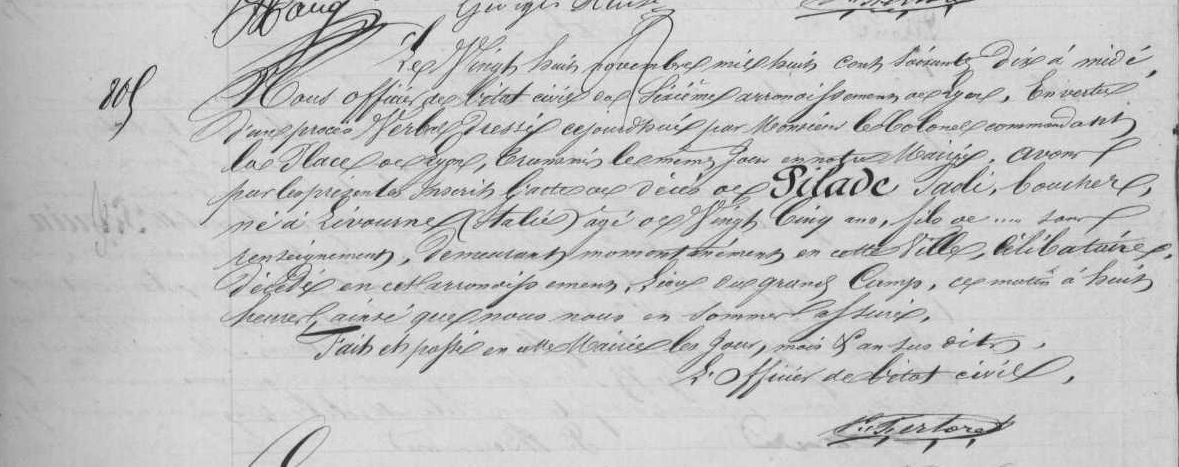 Georges
Le Vingt huit novembre mil huit cent soixante dix à midi,
805
Nous officier de l'état civil du Sixième arrondissement de Lyon, En vertu
d'un procès Verbal Dressé cejourd'hui par Monsieur le Colonel commandant
la Place de Lyon, transmis le même Jour en notre Mairie, avons
par les présentes Inscrit l'acte de décès de Pilade Tadi, boucher,
né à Livourne (Italie) âgé de Vingt Cinq ans, fils de .... sans
renseignement, Demeurant momentanément en cette Ville, Célibataire,
Décédé en cet arrondissement, Lieu du grand Camp, ce matin à huit
heures, ainsi que nous nous en sommes assuré,
Fait et passé en cette Mairie les Jour, mois & an sus dits,
L'Officier de l'état civil,